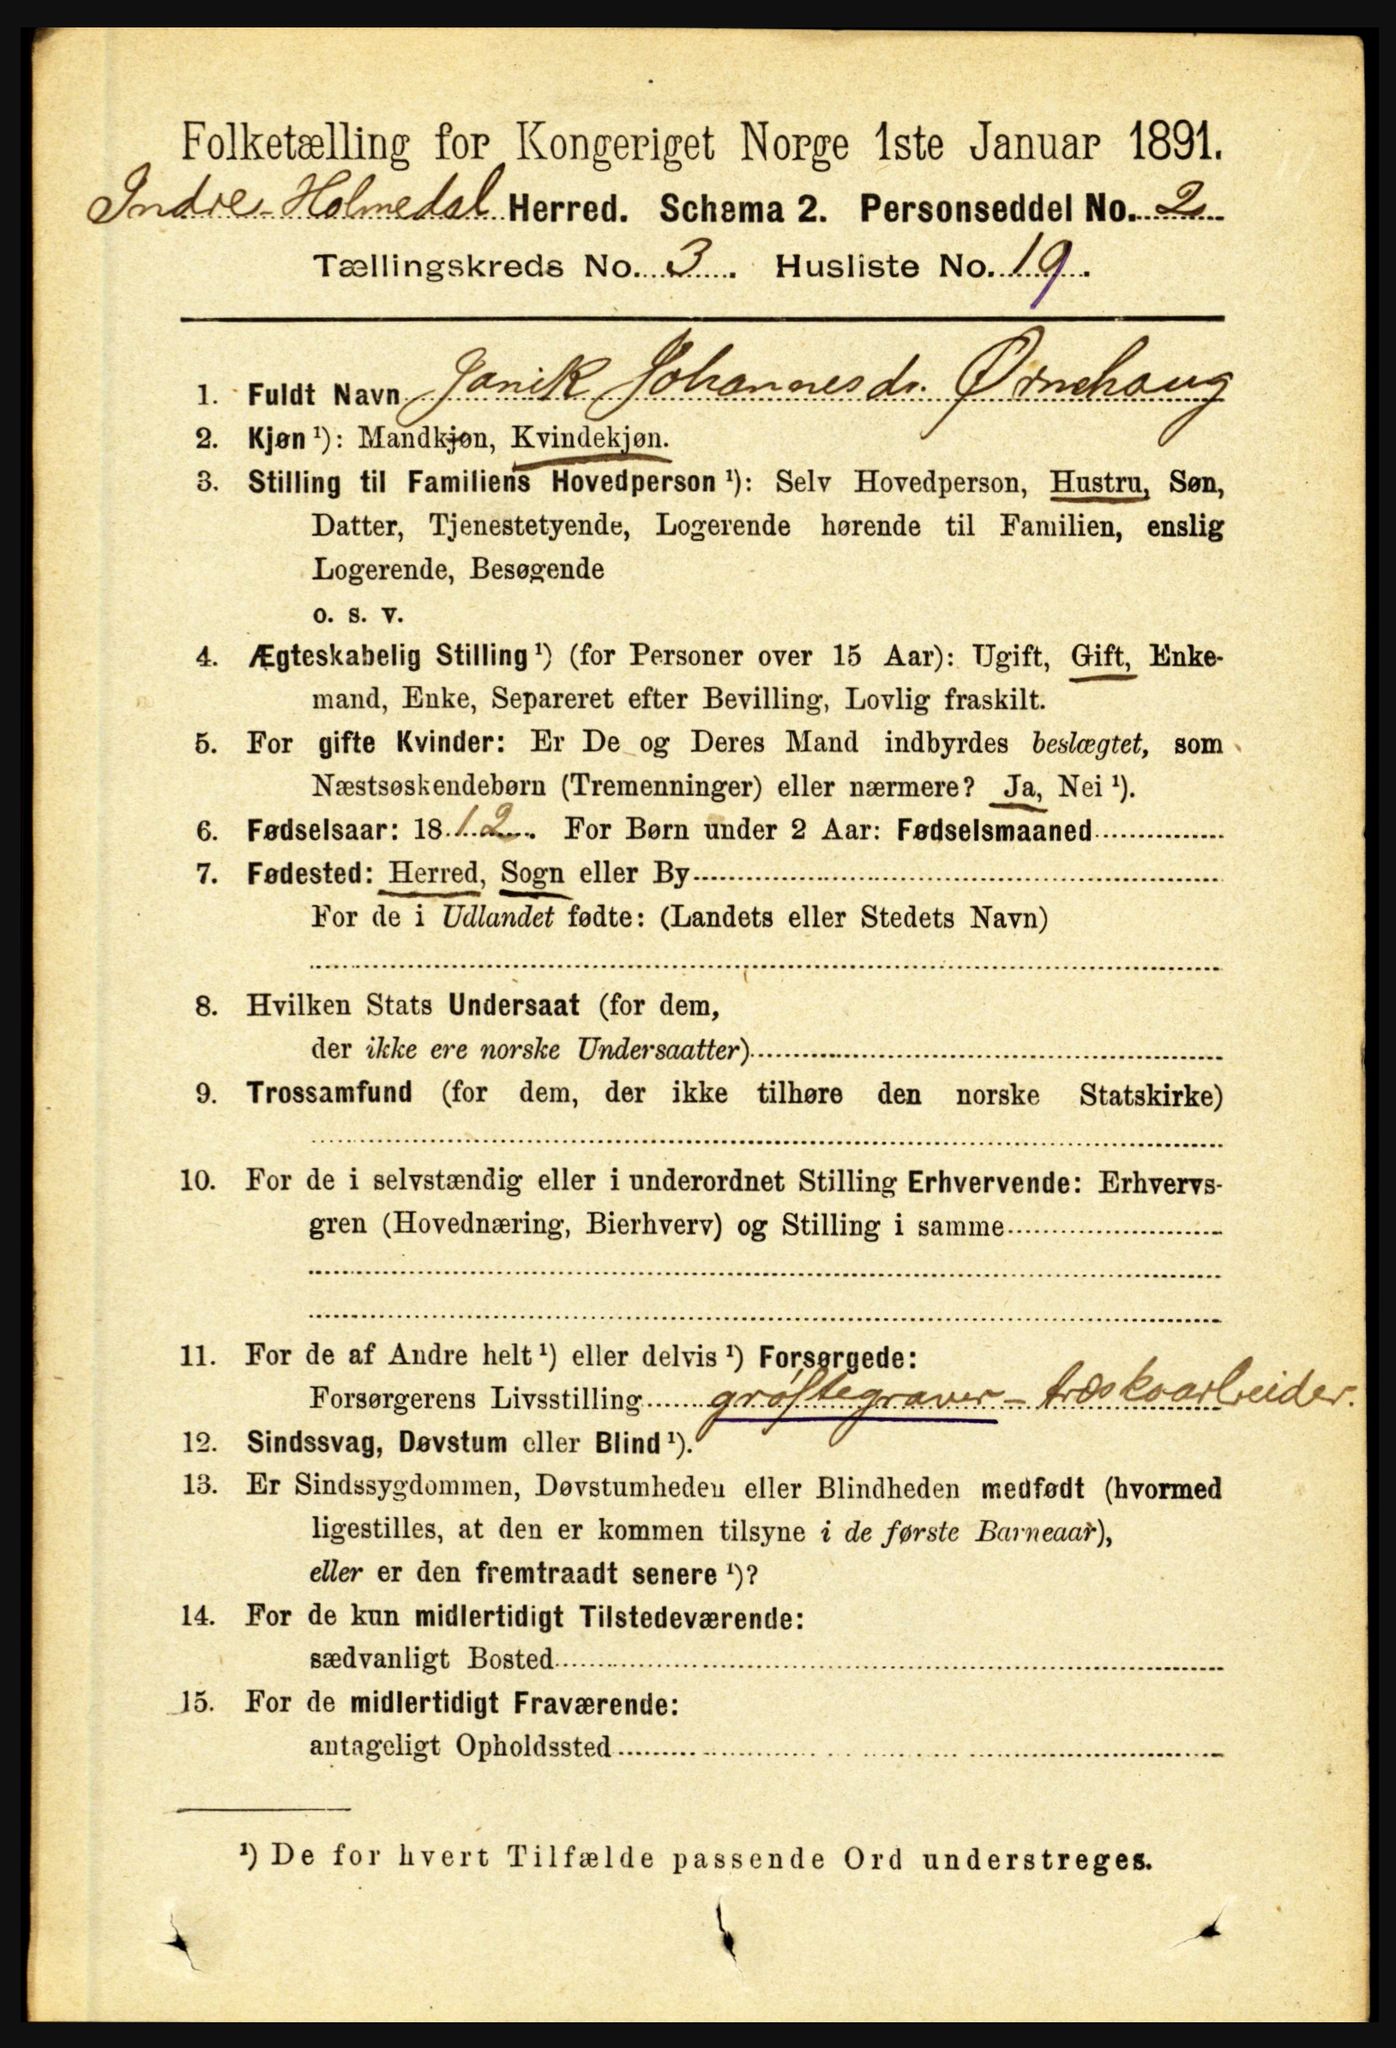 Folketælling for Kongeriget Norge 1ste Januar 1891.
Indre Holmedal Herred. Schema 2. Personseddel No. 2
Tællingskreds No. 3. Husliste No. 19.
1. Fuldt Navn Janik Johannesdr. Ørnehaug
2. Kjøn ¹): Mandkjøn, Kvindekjøn.
3. Stilling til Familiens Hovedperson ¹): Selv Hovedperson, Hustru, Søn,
Datter, Tjenestetyende, Logerende hørende til Familien, enslig
Logerende, Besøgende
o. s. v.
4. Ægteskabelig Stilling ¹) (for Personer over 15 Aar): Ugift, Gift, Enke-
mand, Enke, Separeret efter Bevilling, Lovlig fraskilt.
5. For gifte Kvinder: Er De og Deres Mand indbyrdes beslægtet, som
Næstsøskendebørn (Tremenninger) eller nærmere? Ja, Nei ¹).
6. Fødselsaar: 1812. For Børn under 2 Aar: Fødselsmaaned
7. Fødested: Herred, Sogn eller By
For de i Udlandet fødte: (Landets eller Stedets Navn)
8. Hvilken Stats Undersaat (for dem,
der ikke ere norske Undersaatter)
9. Trossamfund (for dem, der ikke tilhøre den norske Statskirke)
10. For de i selvstændig eller i underordnet Stilling Erhvervende: Erhvervs-
gren (Hovednæring, Bierhverv) og Stilling i samme
11. For de af Andre helt ¹) eller delvis ¹) Forsørgede:
Forsørgerens Livsstilling grøftegraver - træskoarbeider.
12. Sindssvag, Døvstum eller Blind ¹).
13. Er Sindssygdommen, Døvstumheden eller Blindheden medfødt (hvormed
ligestilles, at den er kommen tilsyne i de første Barneaar),
eller er den fremtraadt senere ¹)?
14. For de kun midlertidigt Tilstedeværende:
sædvanligt Bosted
15. For de midlertidigt Fraværende:
antageligt Opholdssted
¹) De for hvert Tilfælde passende Ord understreges.